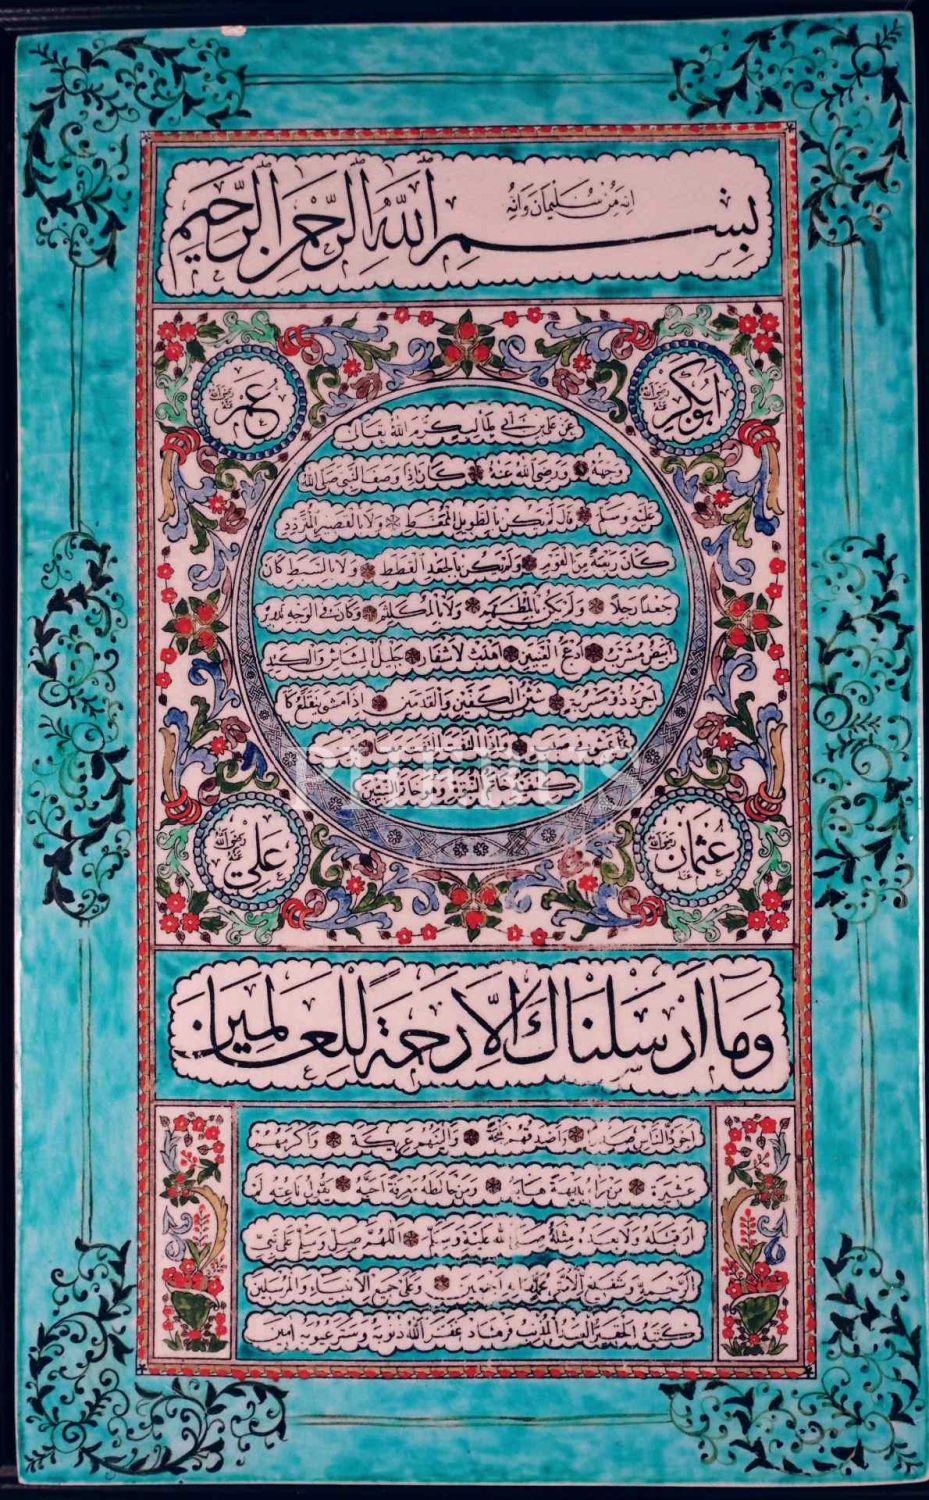 انه من سليمان وانه
بسم الله الرحمن الرحيم
ابوبكر رضي الله عنه
عمر رضي الله عنه
عن علي بن ابي طالب كرم الله تعالى
وجهه ورضي الله عنه كان اذا وصف النبي صلى الله
عليه وسلم قال لم يكن بالطويل الممغط ولا بالقصير المتردد
كان ربعة من القوم ولم يكن بالجعد القطط ولا بالسبط كان
جعدا رجلا ولم يكن بالمطهم ولا بالمكلثم وكان في الوجه تدوير
ابيض مشرب ادعج العينين اهدب الاشفار جليل المشاش والكتد
اجرد ذو مسربة شثن الكفين والقدمين اذا مشى يتقلع كا
PHEBUS
عثمان رضي الله عنه
علي رضي الله عنه
وما ارسلناك الا رحمة للعالمين
اجود الناس صدرا واصدقهم لهجة والينهم عريكة واكرمهم
عشيرة من رآه بديهة هابه ومن خالطه معرفة احبه يقول ناعته لم
ار قبله ولا بعده مثله صلى الله عليه وسلم اللهم صل وسلم على نبي
الرحمة وشفيع الامة محمد وآله اجمعين وعلى جميع الانبياء والمرسلين
كتبه الحقير العبد المذنب فرهاد غفر الله ذنوبه وستر عيوبه امين